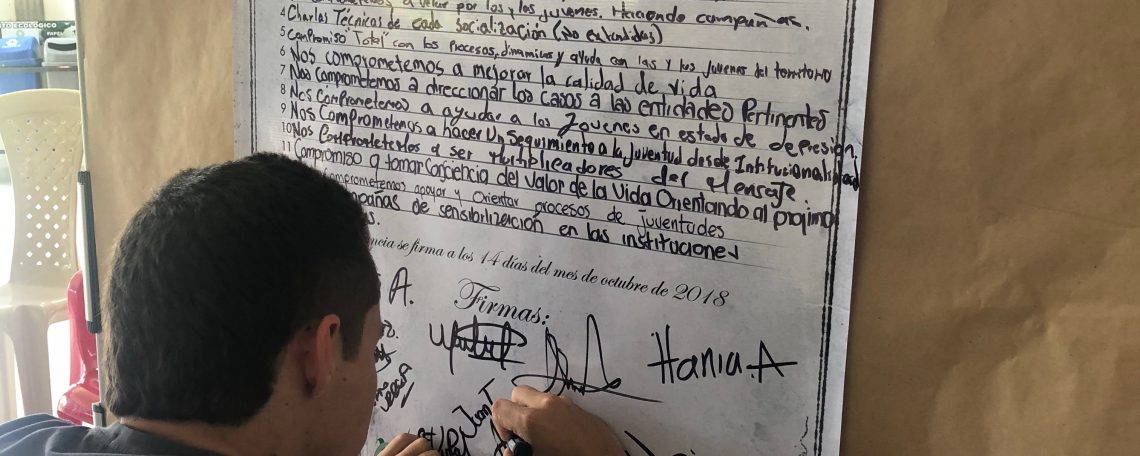 a velar por los y los jóvenes. Haciendo campañas.
4 Charlas Técnicas de cada Socialización (No extendidas)
5 Compromiso "Total" con los procesos, dinamicas y ayuda con las y los Juvenes del territorio
6 Nos comprometemos a mejorar la calidad de vida
7 Nos Comprometemos a direccionar los casos a las entidades Pertinentes
8 Nos Comprometemos a ayudar a los Jovenes en estado de depresión,
9 Nos Comprometemos a hacer Un Seguimiento a la Juventud desde Intitucionalidad
10 Nos Comprometemos a ser Multiplicadores del Mensaje
11 Compromiso a tomar Conciencia del Valor de la Vida Orientando al projimo
comprometemos apoyar y orientar procesos de juventudes
campañas de sensibilización en las instituciones
se firma a los 14 días del mes de octubre de 2018
A.
Firmas:
Hania.A